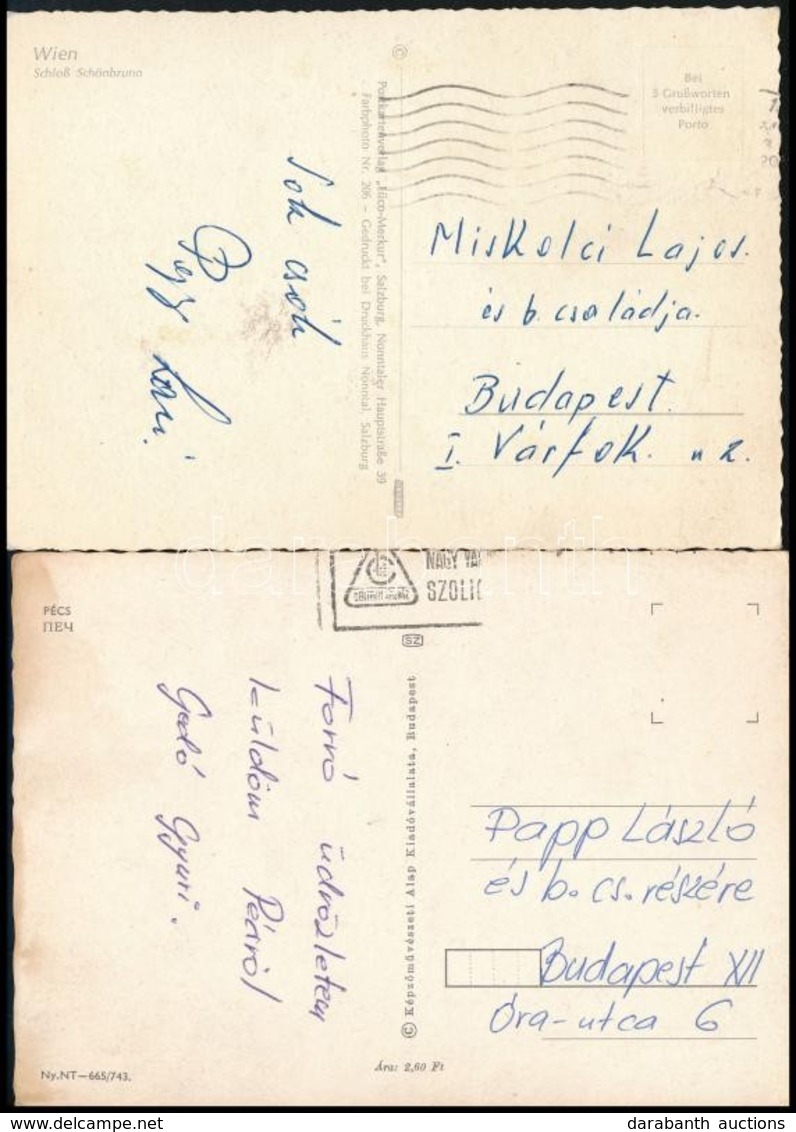 Wien
Schloß Schönbrunn
Bei
3 Grußworten
verbilligtes
Porto
Postkartenverlag „Lüco-Merkur", Salzburg, Nonntaler Hauptstraße 39
Farbphoto Nr. 206 – Gedruckt bei Druckhaus Nonntal, Salzburg
Sok csók
Papp Laci.
Miskolci Lajos.
és b. családja.
Budapest.
I. Várfok. u 2.
darabanth
NAGY
SZOLIC
PÉCS
ПЕЧ
SZ
Forró üdvözletem
küldöm Pécsről
Gedó Gyuri.
© Képzőművészeti Alap Kiadóvállalata, Budapest
Papp László
és b. cs. részére
Budapest XII
Óra-utca 6
Ára: 2,60 Ft
Ny.NT—665/743.
www.darabanth auctions